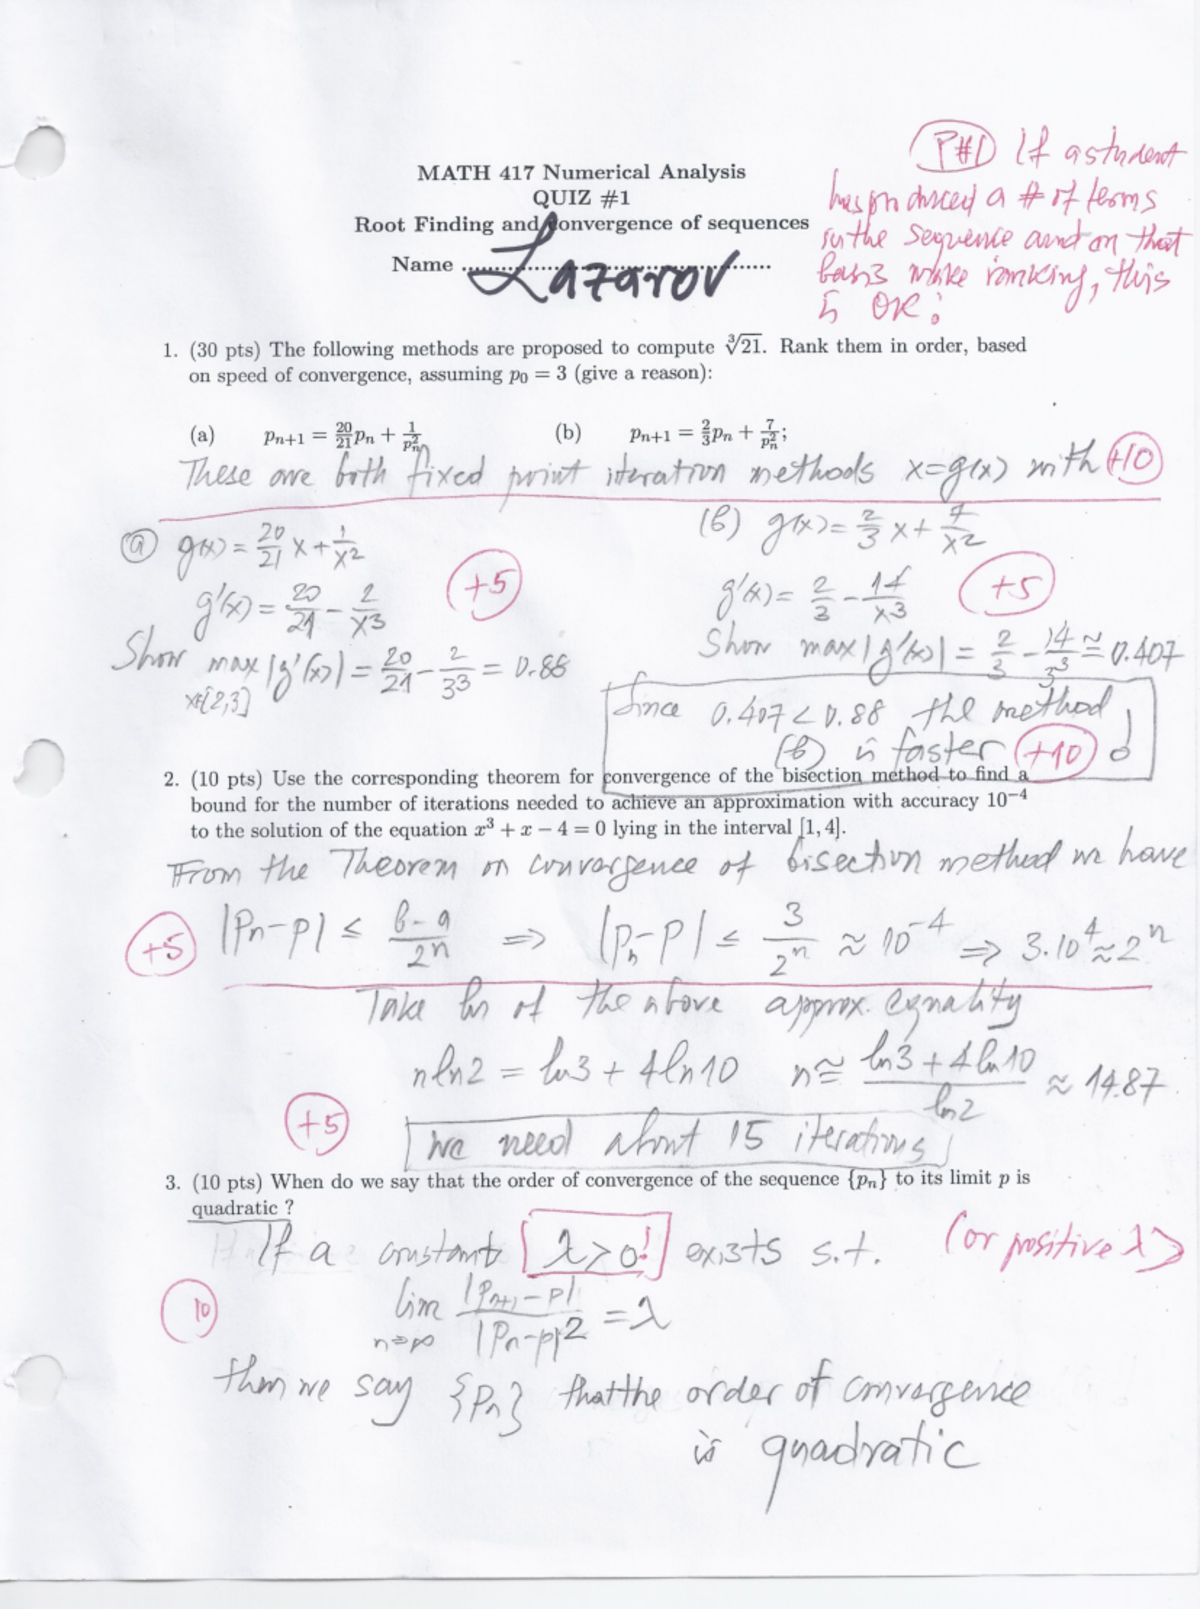 MATH 417 Numerical Analysis
QUIZ #1
Root Finding and convergence of sequences
Name Lazarov
P#1 If a student
has produced a # of terms
in the sequence and on that
basis make ranking, this
is OK!
1. (30 pts) The following methods are proposed to compute ∛21. Rank them in order, based
on speed of convergence, assuming p₀ = 3 (give a reason):
(a) pₙ₊₁ = 20/21 pₙ + 1/pₙ² (b) pₙ₊₁ = 2/3 pₙ + 7/pₙ²;
These are both fixed point iteration methods x=g(x) with +10
(a) g(x) = 20/21 x + 1/x²
g'(x) = 20/21 - 2/x³ +5
Show max |g'(x)| = 20/21 - 2/3³ = 0.88
x∈[2,3]
(b) g(x) = 2/3 x + 7/x²
g'(x) = 2/3 - 14/x³ +5
Show max |g'(x)| = 2/3 - 14/3³ ≅ 0.407
Since 0.407 < 0.88 the method
(b) is faster ! +10
2. (10 pts) Use the corresponding theorem for convergence of the bisection method to find a
bound for the number of iterations needed to achieve an approximation with accuracy 10⁻⁴
to the solution of the equation x³ + x − 4 = 0 lying in the interval [1, 4].
From the Theorem on convergence of bisection method we have
+5 |Pn-p| ≤ b-a/2ⁿ ⇒ |pn-p| ≤ 3/2ⁿ ≈ 10⁻⁴ ⇒ 3.10⁴ ≈ 2ⁿ
Take ln of the above approx. equality
n ln2 = ln3 + 4ln10 n ≅ ln3 + 4ln10/ln2 ≈ 14.87
+5 We need about 15 iterations
3. (10 pts) When do we say that the order of convergence of the sequence {pₙ} to its limit p is
quadratic ?
If a constant λ>0! exists s.t. (or positive λ)
10 lim n→∞ |Pn+1-p|/|Pn-p|² = λ
then we say {Pn} that the order of convergence
is quadratic